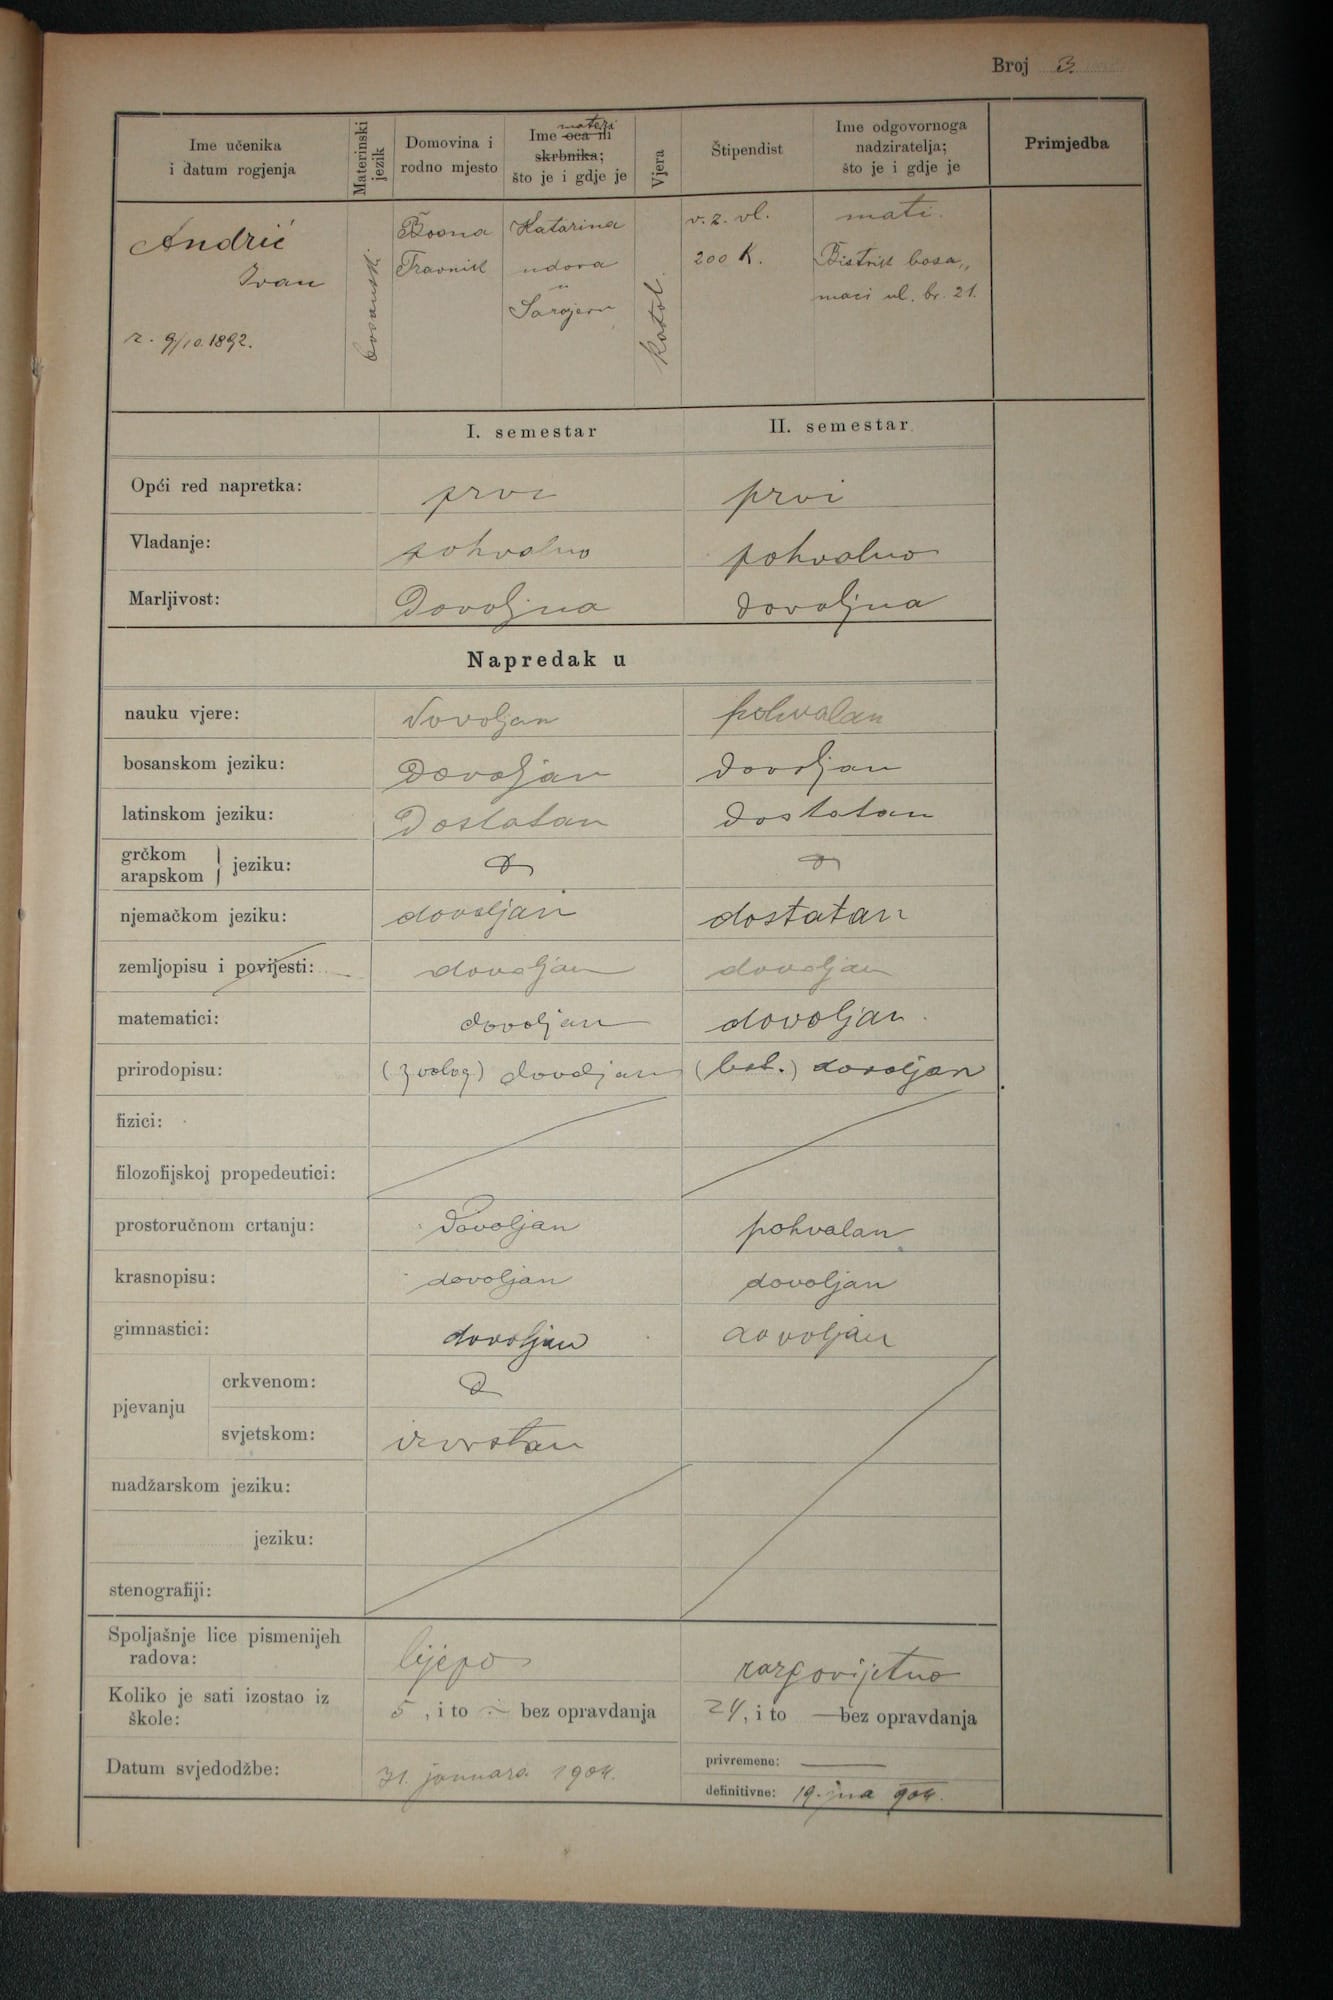 Broj 3.
Ime učenika
i datum rogjenja
Materinski
jezik
Domovina i
rodno mjesto
matera
Ime oca ili
skrbnika;
što je i gdje je
Vjera
Štipendist
Ime odgovornoga
nadziratelja;
što je i gdje je
Primjedba
Andrić
Ivan
r. 9/10.1892.
bosanski
Bosna
Travnik
Katarina
udova
u
Sarajevu
katol.
v. z. vl.
200 K.
mati.
Bistrik basa„
maci ul. br. 21.
I. semestar II. semestar
Opći red napretka: prvi prvi
Vladanje: pohvalno pohvalno
Marljivost: Dovoljna dovoljna
Napredak u
nauku vjere: dovoljan pohvalan
bosanskom jeziku: Dovoljan dovoljan
latinskom jeziku: Dostatan dostatan
grčkom
arapskom jeziku:
njemačkom jeziku: dovoljan dostatan
zemljopisu i povijesti: dovoljan dovoljan
matematici: dovoljan dovoljan.
prirodopisu: (zoolog) dovoljan (bot.) dovoljan
fizici:
filozofijskoj propedeutici:
prostoručnom crtanju: Dovoljan pohvalan
krasnopisu: dovoljan dovoljan
gimnastici: dovoljan dovoljan
pjevanju
crkvenom:
svjetskom: izvrstan
madžarskom jeziku:
jeziku:
stenografiji:
Spoljašnje lice pismenijeh
radova: lijepo razgovijetno
Koliko je sati izostao iz
škole: 5, i to — bez opravdanja 24, i to — bez opravdanja
Datum svjedodžbe: 31. januara 1904.
privremene: —
definitivne: 19. jula 904.